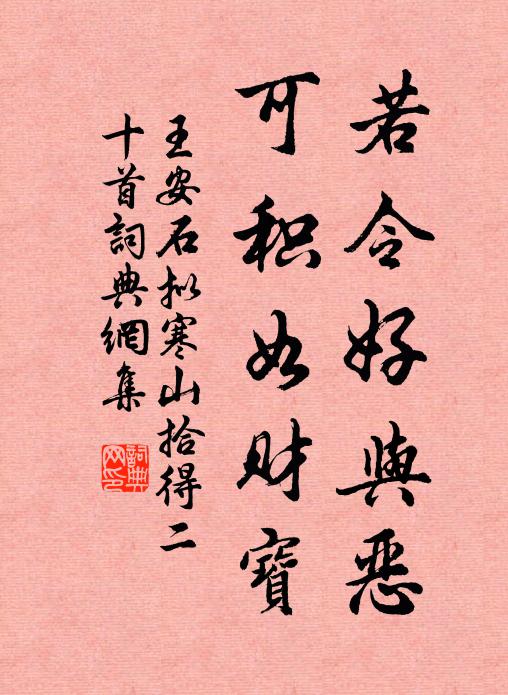 若令好與惡
可積如財寶
王安石拟寒山拾得二
十首詞典網集
詞典
网印